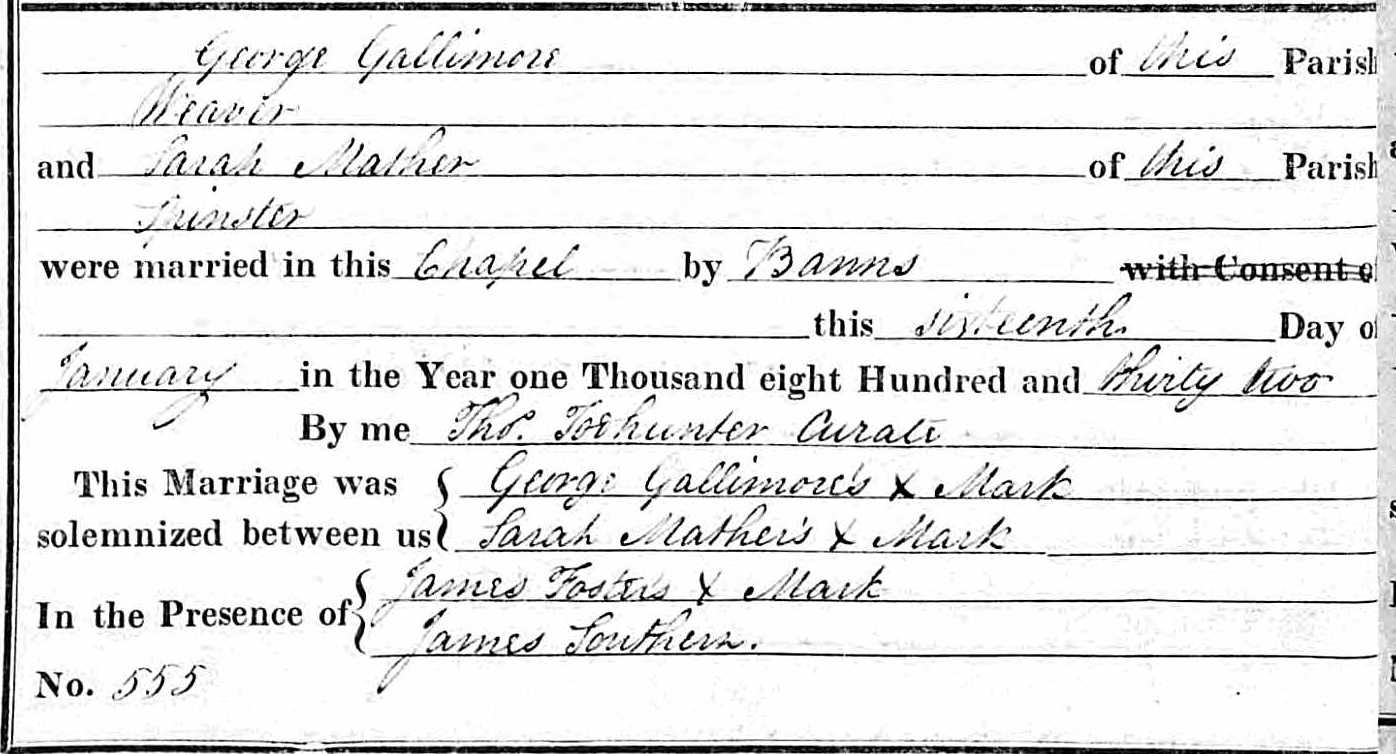 George Gallimore of this Parish
Weaver
and Sarah Mather of this Parish
Spinster
were married in this Chapel by Banns with Consent of
this sixteenth Day of
January in the Year one Thousand eight Hundred and thirty two
By me Thos. Todhunter Curate
This Marriage was George Gallimore's X Mark
solemnized between us Sarah Mather's X Mark
In the Presence of James Foster's X Mark
James Southern.
No. 555